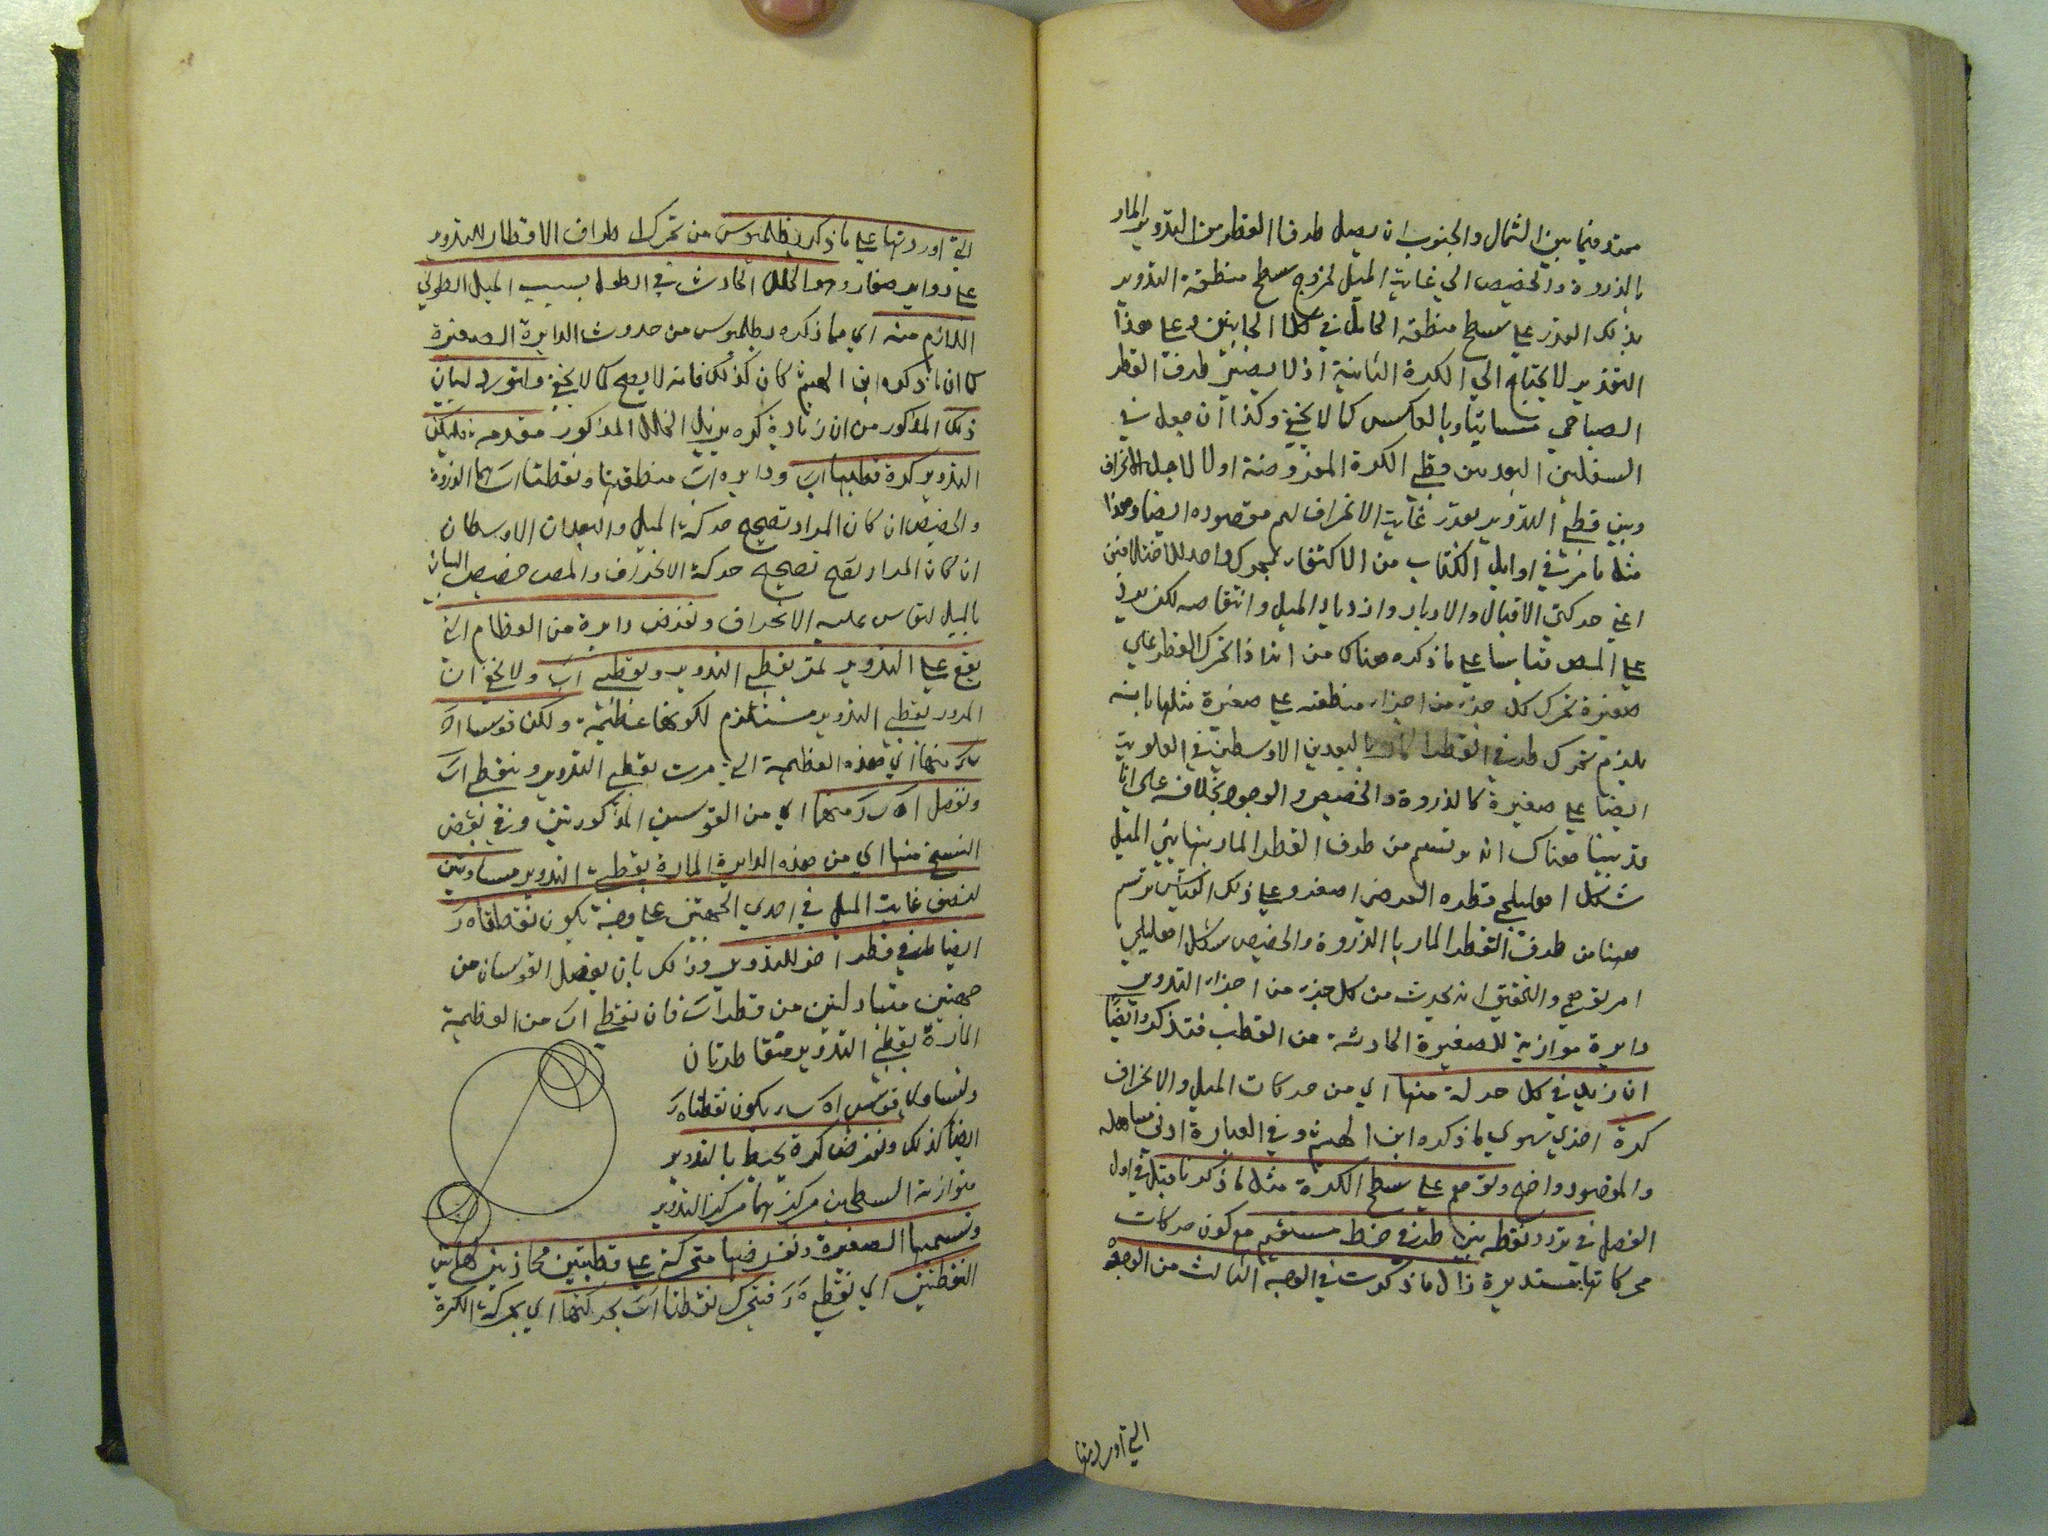 ممتد فيما بين الشمال والجنوب ان يصل طرفا القطر من التدوير المار
بالذروة والحضيض الى غاية الميل لخروج سطح منطقة التدوير
بذلك القدر على سطح منطقة الحامل في كلا الجانبين وعلى هذا
التقدير لا يحتاج الى الكرة الثانية اذ لا يصير طرف القطر
الصباحي مسائيا وبالعكس كما لا يخفى وكذا ان جعل في
السفليين البعد بين قطبي الكرة المفروضة اولا لاجل الانحراف
وبين قطبي التدوير بقدر غاية الانحراف تم مقصوده ايضا وهذا
مثل ما مر في اوايل الكتاب من الاكتفاء بمحرك واحد للاختلافين
اعني حركتي الاقبال والادبار وازدياد الميل وانتقاصه لكن يرد
على المص قياسا على ما ذكره هناك من انه اذا تحرك القطر على
صغيرة تحرك كل جزء من اجزاء منطقته على صغيرة مثلها بانه
يلزم تحرك طرفي القطر المار بالبعدين الاوسطين في العلوية
ايضا على صغيرة كالذروة والحضيض والوجود بخلافه على انا
قد بينا هناك انه يرتسم من طرف القطر المار بنهايتي الميل
شكل اهليلجي قطره العرضي اصغر وعلى ذلك القياس يرتسم
ههنا من طرف القطر المار بالذروة والحضيض شكل اهليلجي
امر توهمي والتحقيق انه يحدث من كل جزء من اجزاء التدوير
دايرة موازية للصغيرة الحادثة من القطب فتذكر وايضا
ان زيد في كل حركة منها اي من حركات الميل والانحراف
كرة اخرى سوى ما ذكره ابن الهيثم وفي العبارة ادنى مساهلة
والمقصود واضح وتوهم على سطح الكرة مثل ما ذكرنا قبل في اول
الفصل في تردد نقطة بين طرفي خط مستقيم مع كون حركات
محركاتها مستديرة زال ما ذكرت في الوجه الثالث من الوجوه
التي اوردتها
التي اوردتها على ما ذكره بطلميوس من تحرك اطراف الاقطار للتدوير
على دواير صغار وهو الخلل الحادث في الطول بسبب الميل الطولي
اللازم منه اي مما ذكره بطلميوس من حدوث الدايرة الصغيرة
كما ان ما ذكره ابن الهيثم كان كذلك فانه لا يصح كما لا يخفى ولنورد لبيان
ذلك المذكور من ان زيادة كره يزيل الخلل المذكور مقدمة فليكن
التدوير كرة قطبها اب ودايره اب منطقتها ونقطتا اب هما الذروة
والحضيض ان كان المراد تصحيح حركة الميل والبعدان الاوسطان
ان كان المراد تصحيح حركة الانحراف والمص خصص البيان
بالميل ليقاس عليه الانحراف ونفرض دايرة من العظام التي
يقع على التدوير تمر بقطبي التدوير وبنقطتي اب ولا يخفى ان
المرور بقطبي التدوير مستلزم لكونها عظيمة ولكن قوسا اه
ب ر منها اي هذه العظيمة التي مرت بقطبي التدوير وبنقطتي اب
ونفصل اه ب ر منها اي من القوسين المذكورتين وفي بعض
النسخ منها اي من هذه الدايرة المارة بقطبي التدوير مساويتين
لنصف غاية الميل في احدى الجهتين على وجه يكون نقطتا ه ر
ايضا طرفي قطر اخر للتدوير وذلك بان يفصل القوسان من
جهتين متبادلتين من قطر اب فان نقطتي اب من العظيمة
المارة بقطبي التدوير متقاطرتان
وتساوي قوسي اه ب ر يكون نقطتا ه ر
ايضا كذلك ونفرض كرة يحيط بالتدوير
متوازية السطحين مركزهما مركز التدوير
ونسميها الصغيرة ونفرضها متحركة على قطبين محاذيين لهاتين
النقطتين اي نقطتي ه ر فيتحرك نقطتا اب بحركتها اي بحركة الكرة